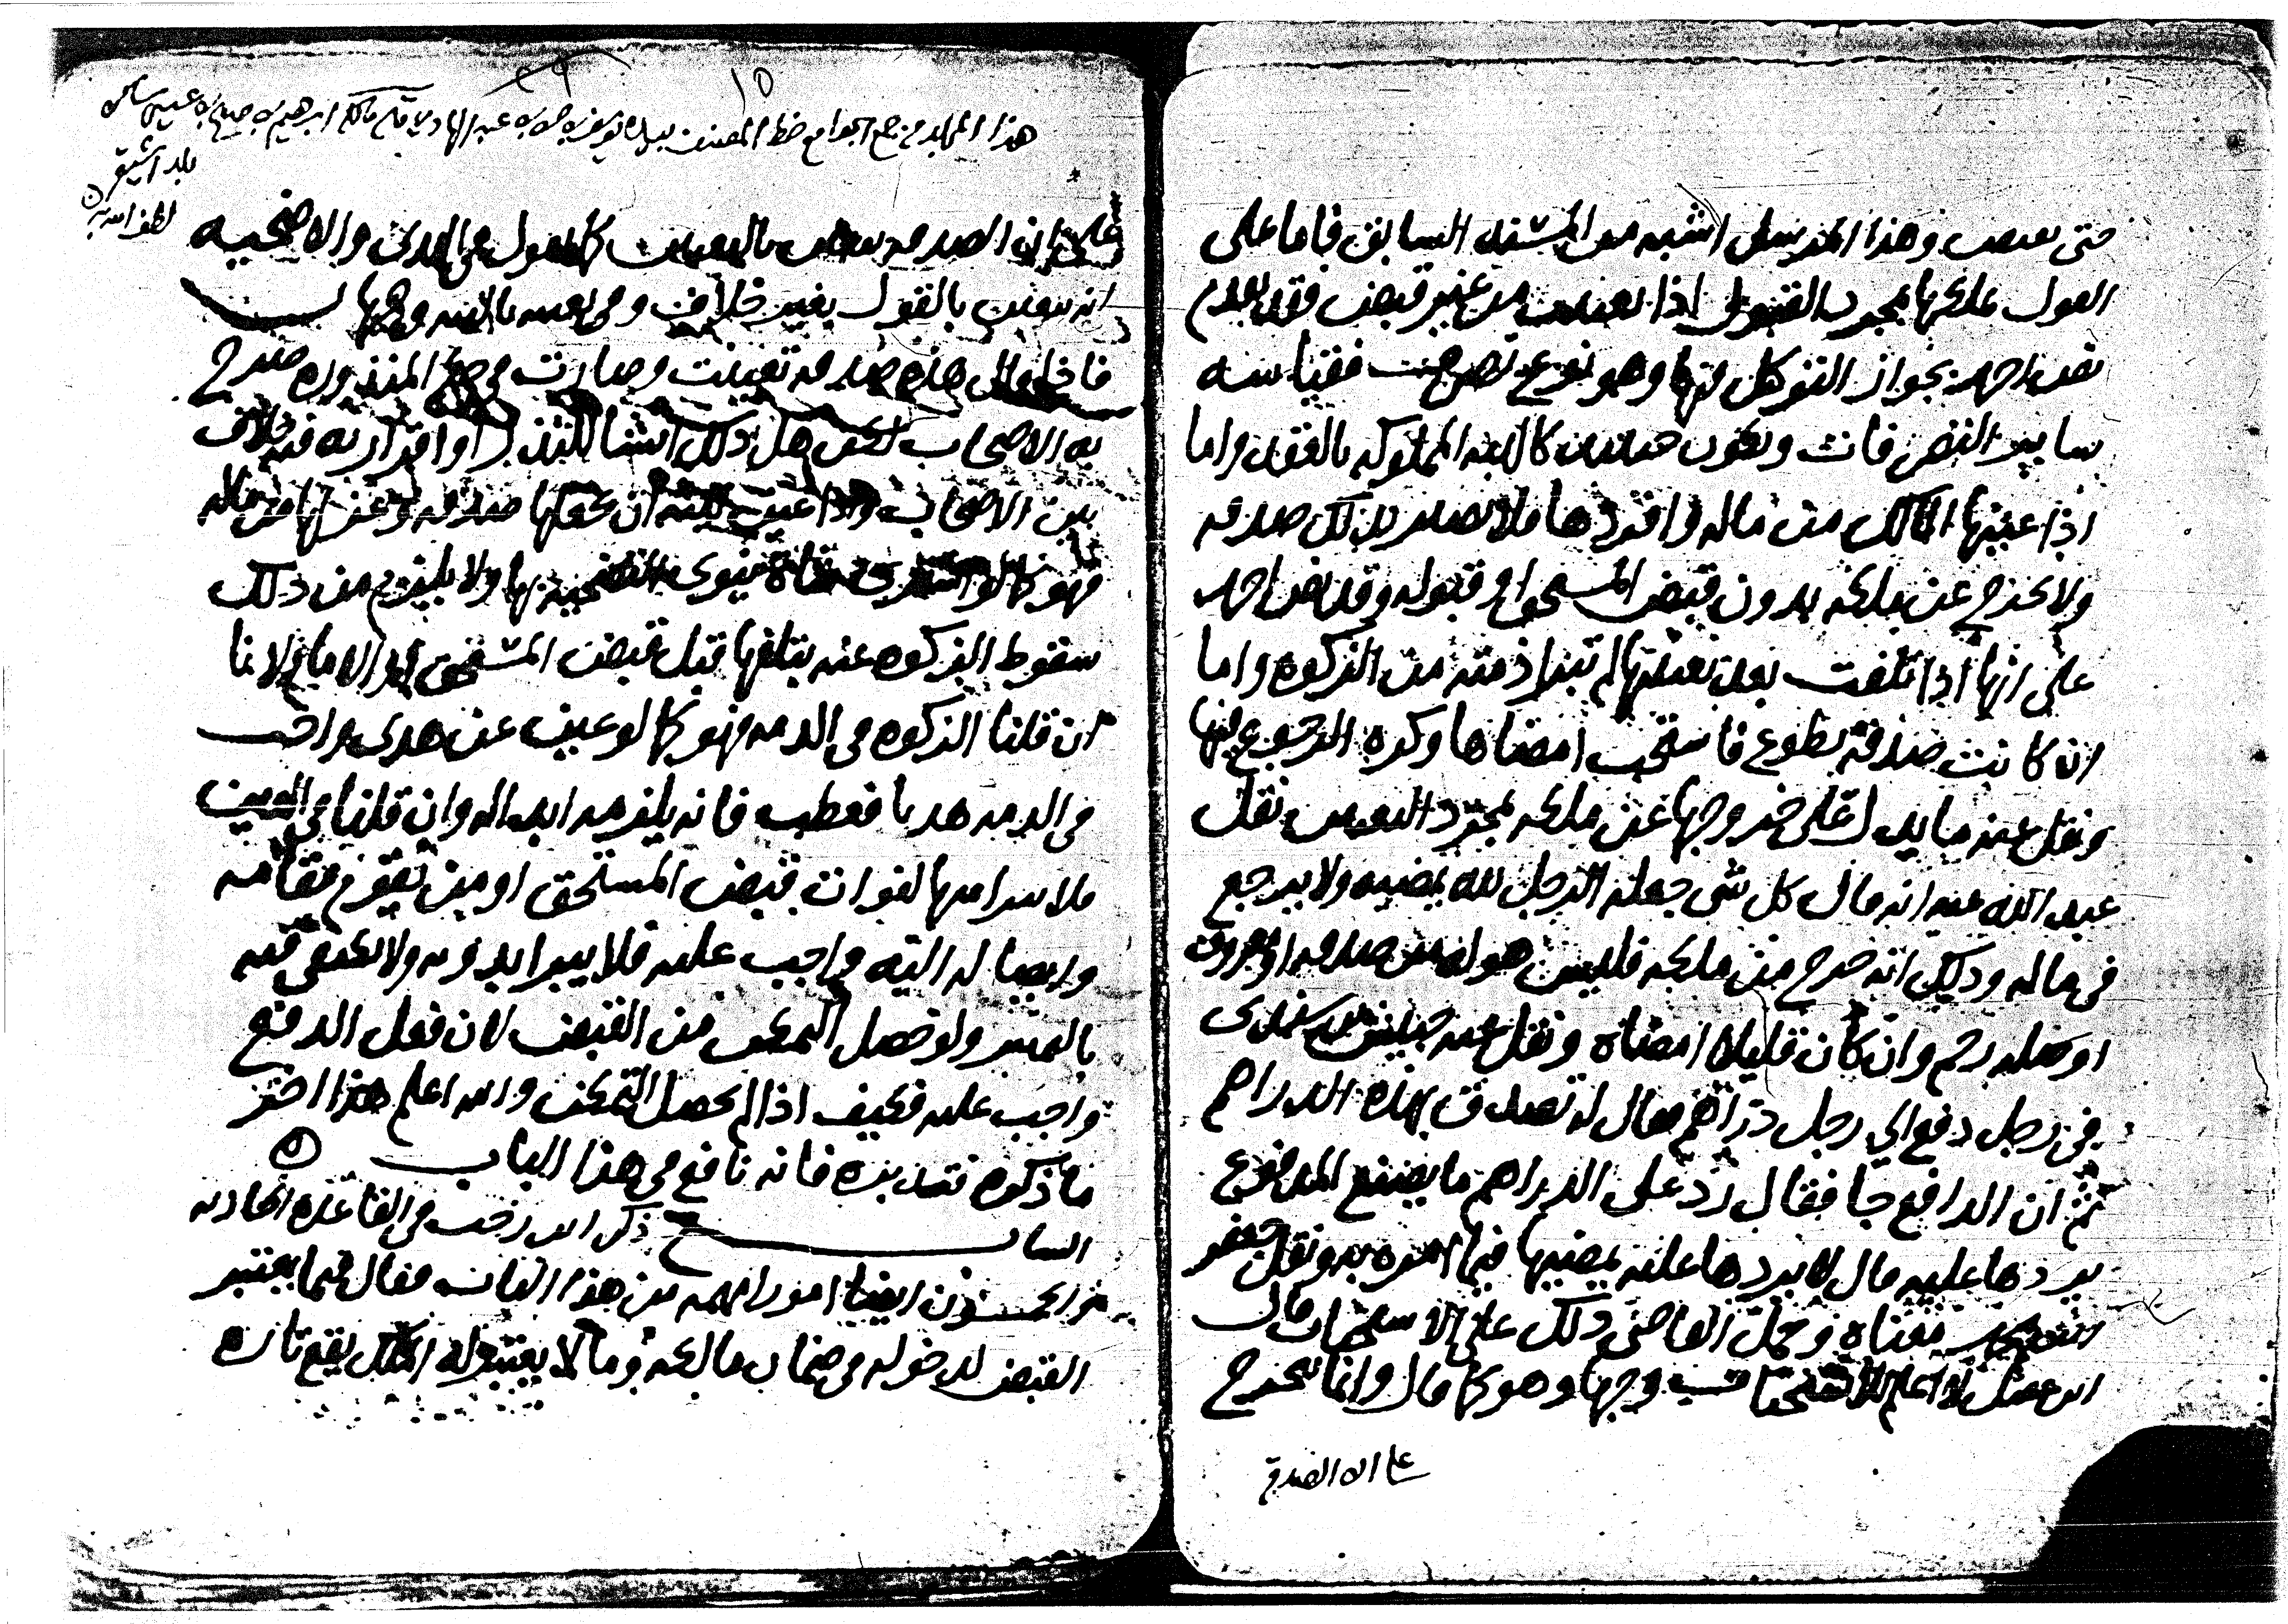 حتى تقبض وهذا التنزيل اشبه من المسئلة السابق فاما على
القول بملكها بمجرد القبول اذا تعينت من غير قبض فقد تقدم
نص احمد بجواز التوكل فيها وهو نوع تصرف فقياسه
ساير التصرفات وتكون حينئذ كالهبة المملوكة بالعقد واما
اذا عينها المالك من ماله وافردها فلا تصير بذلك صدقه
ولا تخرج عن ملكه بدون قبض المستحق او قبوله وقد نص احمد
على انها اذا تلفت بعد تعيينها لم تبرا ذمته من الزكوة واما
ان كانت صدقة تطوع فاستحب امضاها وكره الرجوع فيها
ونقل عنه ما يدل على خروجها عن ملكه بمجرد التعيين نقل
عبد الله عنه انه قال كل شى جعله الرجل لله يمضيه ولا يرجع
فى ماله وذلك انه خرج من ملكه فليس هو له من صدقه او معروف
او صله رحم وان كان قليلا امضاه ونقل عنه حبيش بن سندى
فى رجل دفع الى رجل دراهم فقال له تصدق بهذه الدراهم
ثم ان الدافع جا فقال رد على الدراهم ما يصنع المدفوع
يردها عليه قال لا يردها عليه يمضيها فيما امره به ونقل جعفر
معناه وحمل القاضى ذلك على الاستحباب قال
ابن عقيل لا اعلم للاستحباب وجها وهو كما قال وانما يخرج
على ان الصدقه
هذا المجلد من جمع الجوامع خط المصنف يوسف بن حسن بن عبد الهادى
بلد اشيقر
لطف الله به
على ان الصدقه تتعين بالتعيين كما نقول فى الهدى والاضحيه
انه يتعين بالقول بغير خلاف وفى تعينه بالنيه وجهان
فاذا قال هذه صدقه تعينت وصارت فى حكم المنذوره صرح
به الاصحاب لكن هل ذلك انشا للنذر او اقرار به فيه خلاف
بين الاصحاب واذا عين بنيته ان يجعلها صدقه وعزلها من ماله
فهو كما لو اشترى شاة ينوى التضحية بها ولا يلزم من ذلك
سقوط الزكوه عنه بتلفها قبل قبض المستحق او الامام لانا
ان قلنا الزكوه فى الذمه فهو كما لو عين عن هدى واجب
فى الذمه هديا فعطب فانه يلزمه ابداله وان قلنا فى العين
فلا يبرا منها لفوات قبض المستحق او من يقوم مقامه
وايصاله اليه واجب عليه فلا يبرا بدونه ولا يكتفى فيه
بالتمييز ولو حصل التمكن من القبض لان فعل الدفع
واجب عليه فكيف اذا لم يحصل التمكن والله اعلم هذا اخر
ما ذكره فتدبره فانه نافع فى هذا الباب
السابع ذكر ابن رجب فى القاعدة الحاديه
والخمسون ايضا امورا مهمه من هذا الباب فقال فيما يعتبر
القبض لدخوله فى ضمان مالكه وما لا يعتبر له الملك يقع تارة